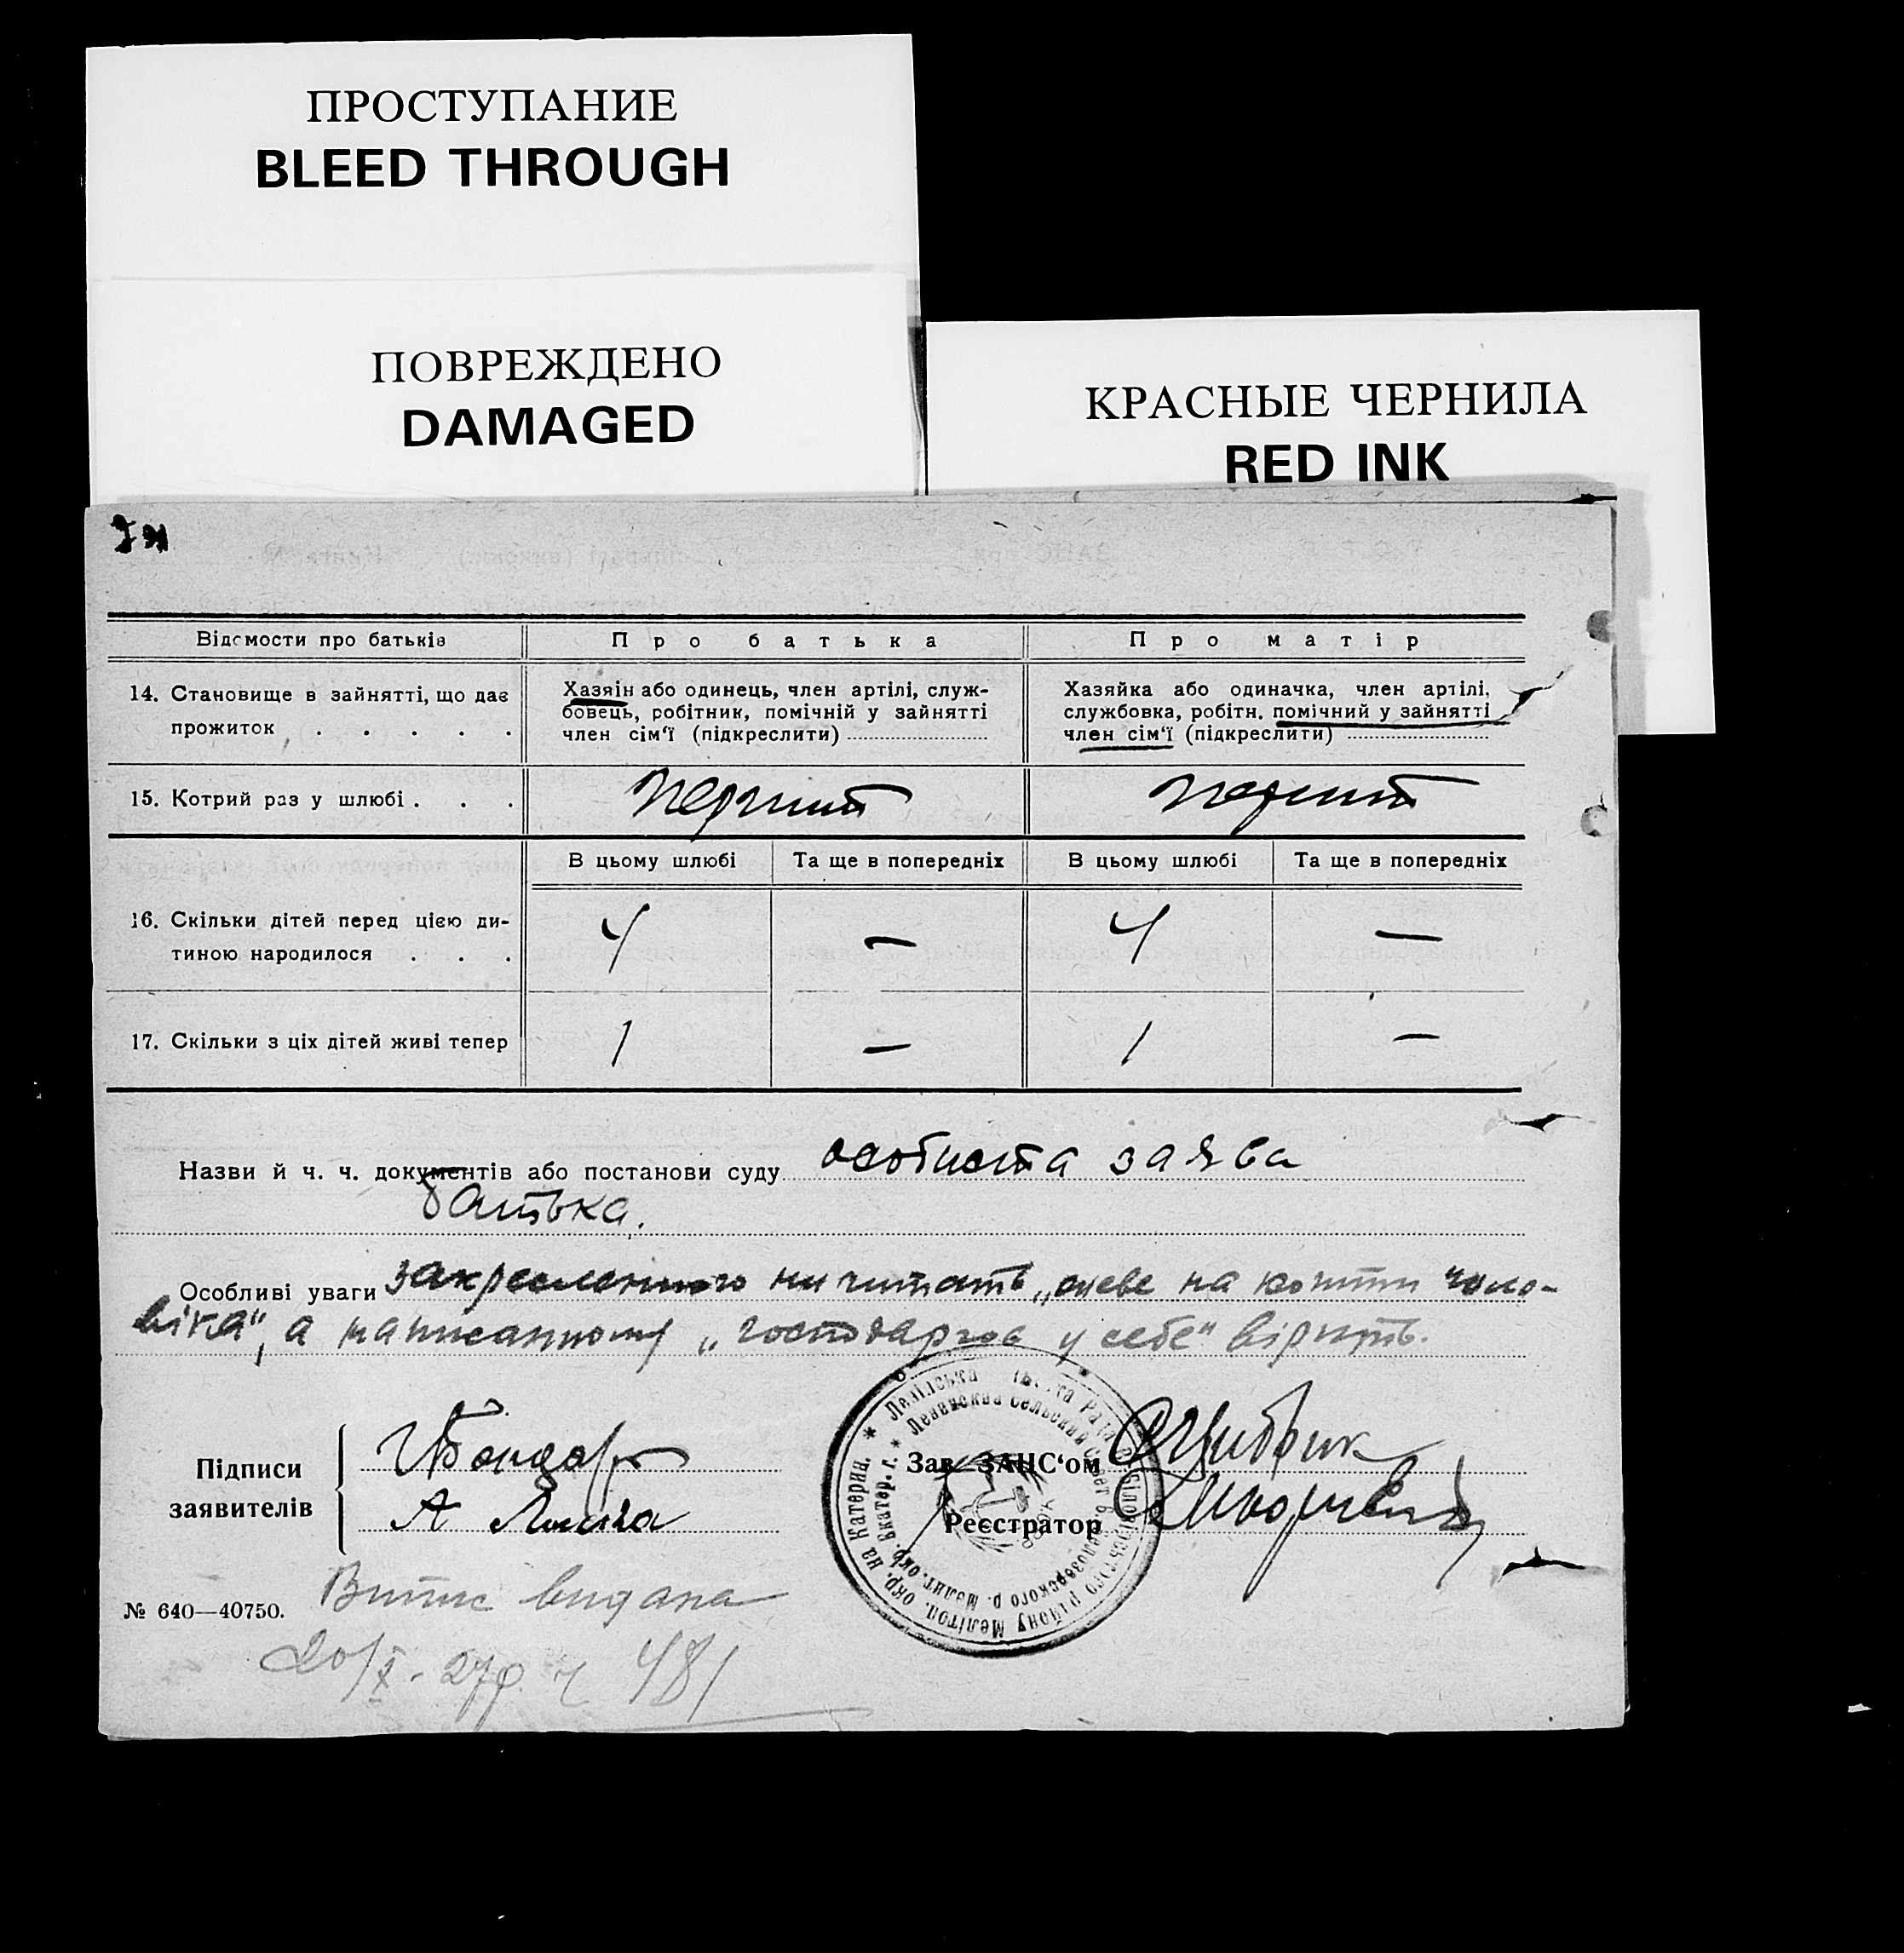 ПРОСТУПАНИЕ
BLEED THROUGH
ПОВРЕЖДЕНО
DAMAGED
КРАСНЫЕ ЧЕРНИЛА
RED INK
Відомости про батьків
Про батька
Про матір
14. Становище в зайнятті, що дає
прожиток . . . . .
Хазяін або одинець, член артілі, служ-
бовець, робітник, помічній у зайнятті
член сім'ї (підкреслити)
Хазяйка або одиначка, член артілі,
службовка, робітн. помічний у зайнятті
член сім'ї (підкреслити)
15. Котрий раз у шлюбі . . .
перший
перший
В цьому шлюбі
Та ще в попередніх
В цьому шлюбі
Та ще в попередніх
16. Скільки дітей перед цією ди-
тиною народилося . . .
4 — 4 —
17. Скільки з ціх дітей живі тепер
1 — 1 —
Назви й ч. ч. документів або постанови суду особиста заява
батька.
Особливі уваги закресленного ни читать „живе на кошти чоло-
віка", а написанному „господарює у себе" вірить.
Підписи
заявителів
Бондар
А
Зав. ЗАНС'ом
Реєстратор
Витис видана
№ 640—40750.
20/X. 27р. ч 481